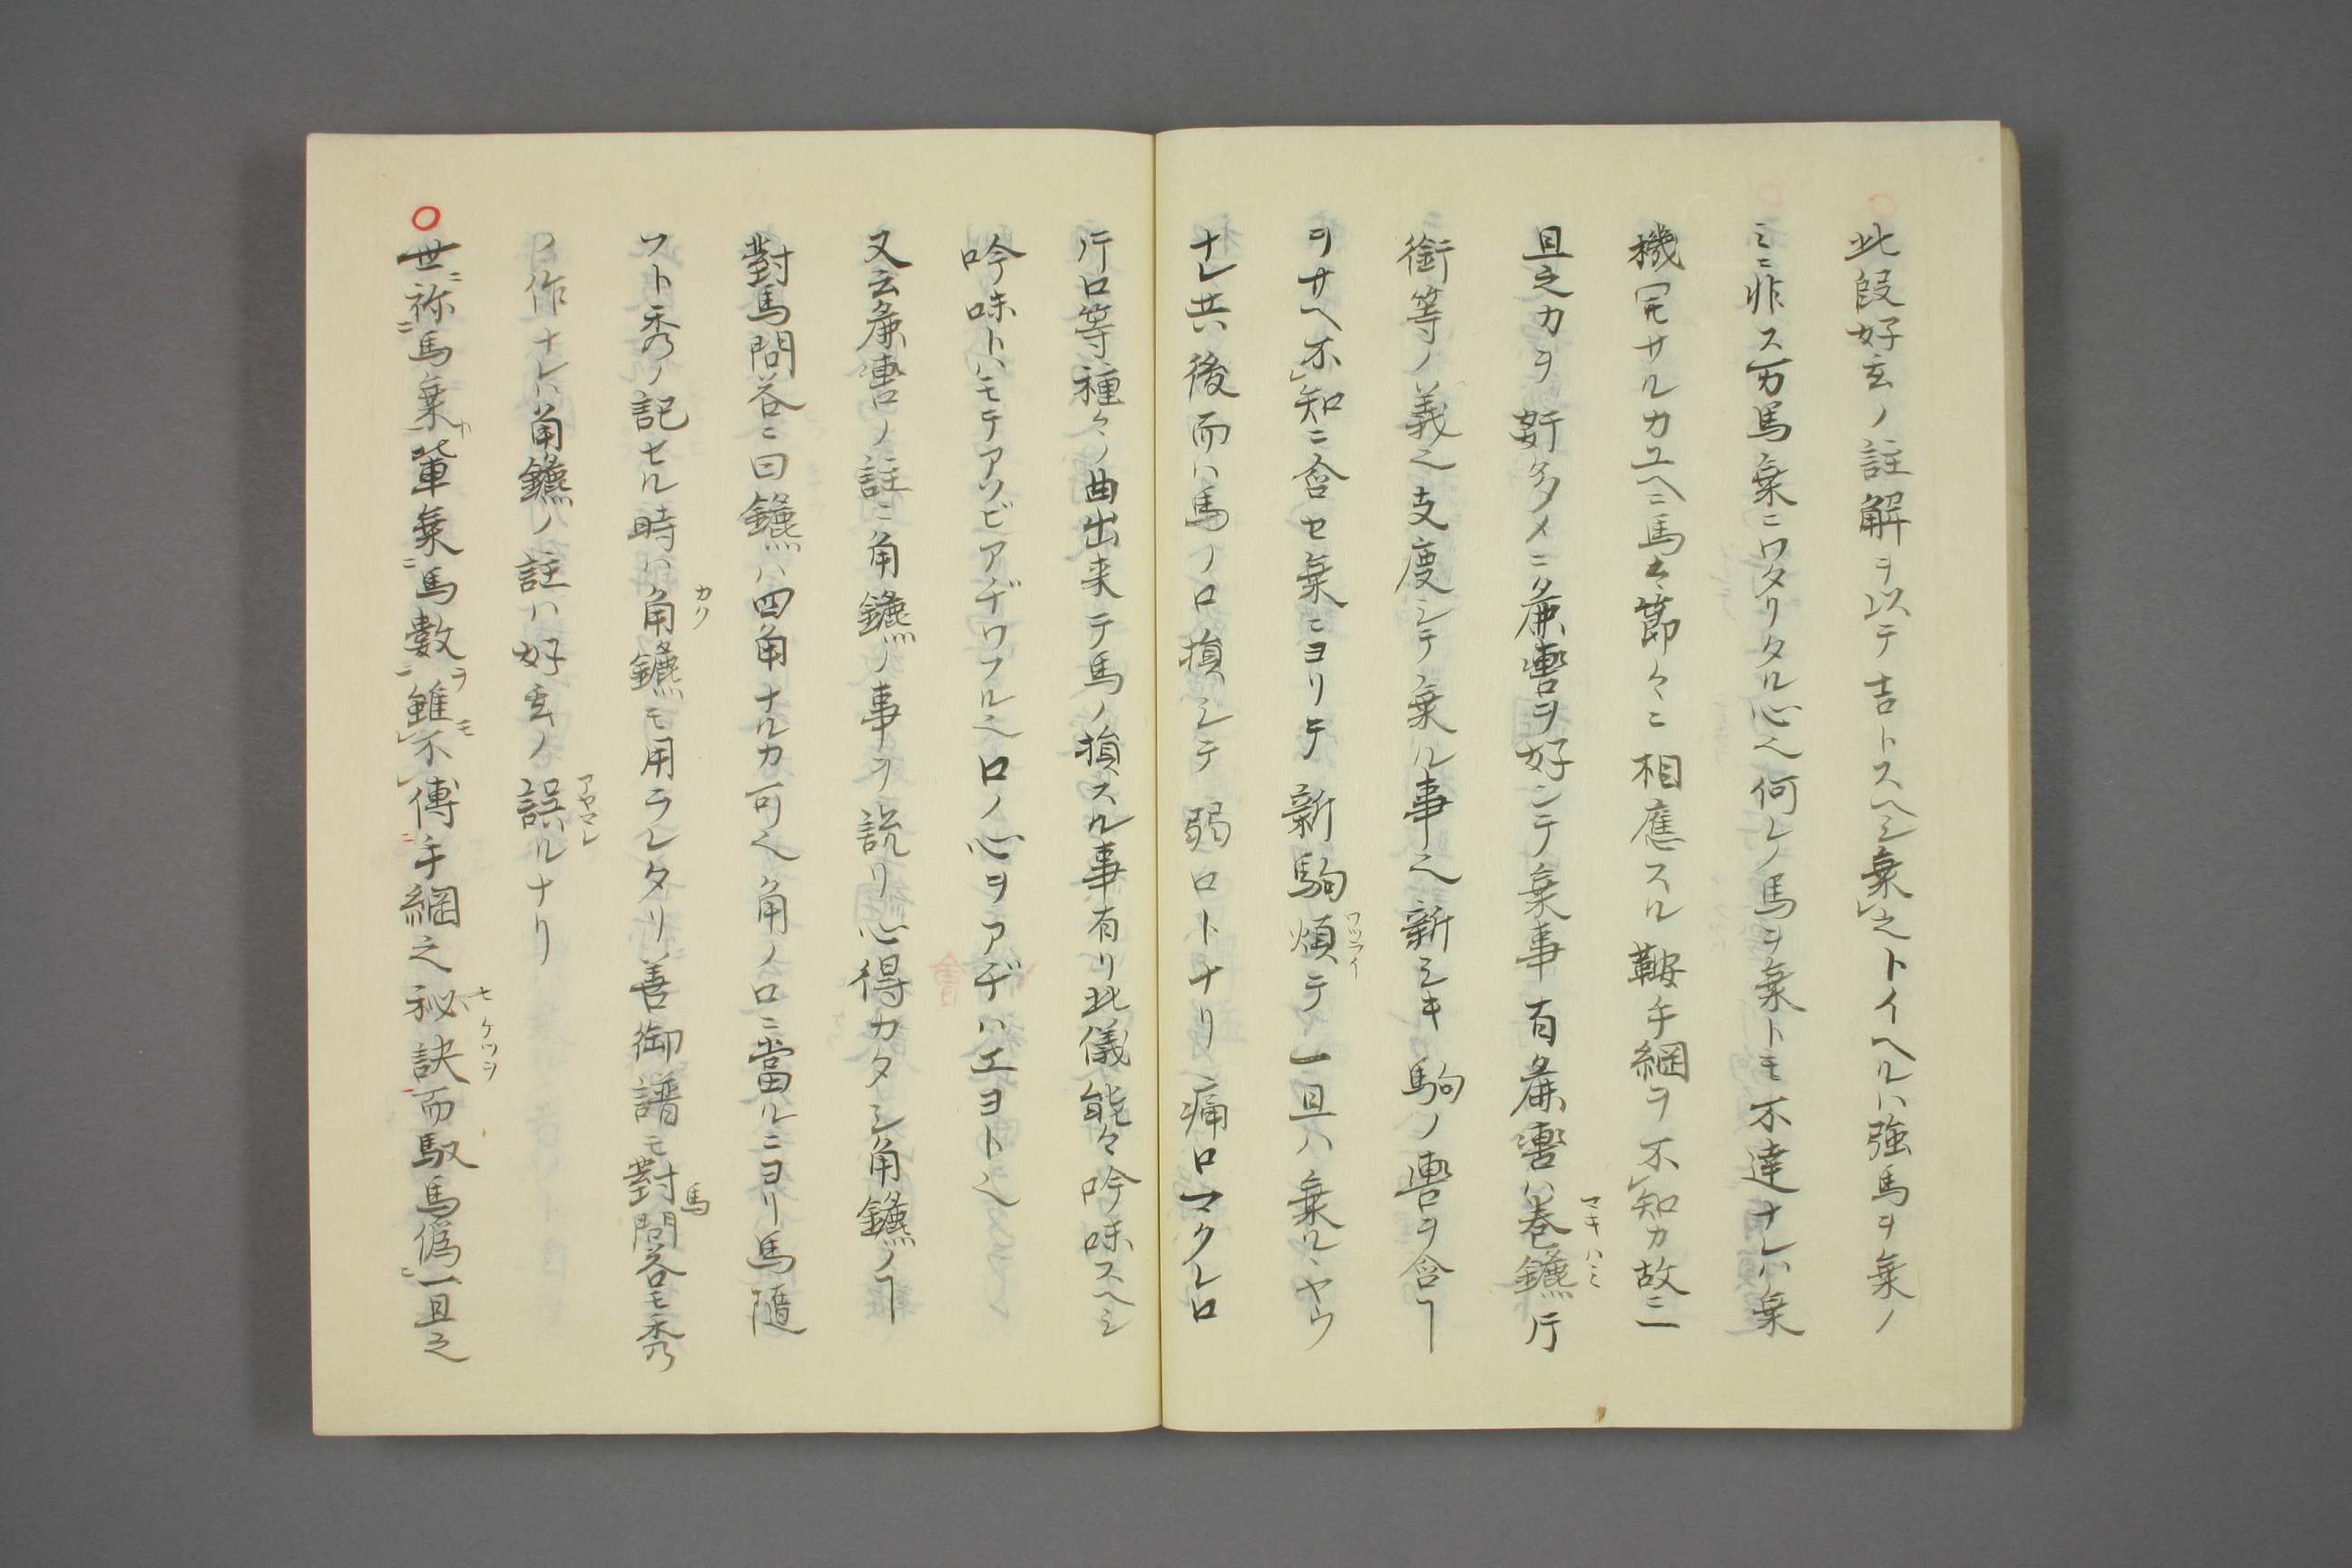 此段好玄ノ註解ヲ以テ吉トスヘシ乗之トイヘルハ強馬ヲ乗ノ
ミニ非ス万馬乗ニワタリタル心也何レノ馬ヲ乗トモ不達ナレハ乗
機定サルカユヘニ馬ニ節々ニ相應スル鞍手綱ヲ不知カ故ニ一
且之カヲ奸タメニ鹿轡ヲ好ンテ乗事有鹿轡ハ巻鑣片
マキハミ
銜等ノ義也支度シテ乗ル事也新シキ駒ノ轡ヲ含ヿ
ヲサヘ不知ニ含セ乗ニヨリテ新駒煩テ一旦ハ乗ルヽヤウ
ワツライ
ナレ共後而ハ馬ノ口損シテ弱口トナリ痛口マクレ口
片口等種々ノ曲出来テ馬ノ損スル事有リ此儀能々吟味スヘシ
吟味トハモテアソビアヂワフル也口ノ心ヲアヂハエヨト也
又云鹿轡ノ註ニ角鑣ノ事ヲ説リ心得カタシ角鑣ノヿ
對馬問答ニ曰鑣ハ四角ナルカ可也角ノ口ニ當ルニヨリ馬随
フト秀ノ記セル時ハ角鑣モ用ラレタリ善御譜モ對馬問答モ秀
カク
ノ作ナレハ角鑣ノ註ハ好玄ノ誤ルナリ
アヤマレ
〇世ニ祢馬乗ト輩乗馬數ヲ雖モ不傳手綱之秘訣而馭馬偽一旦之
ヒケツヲ